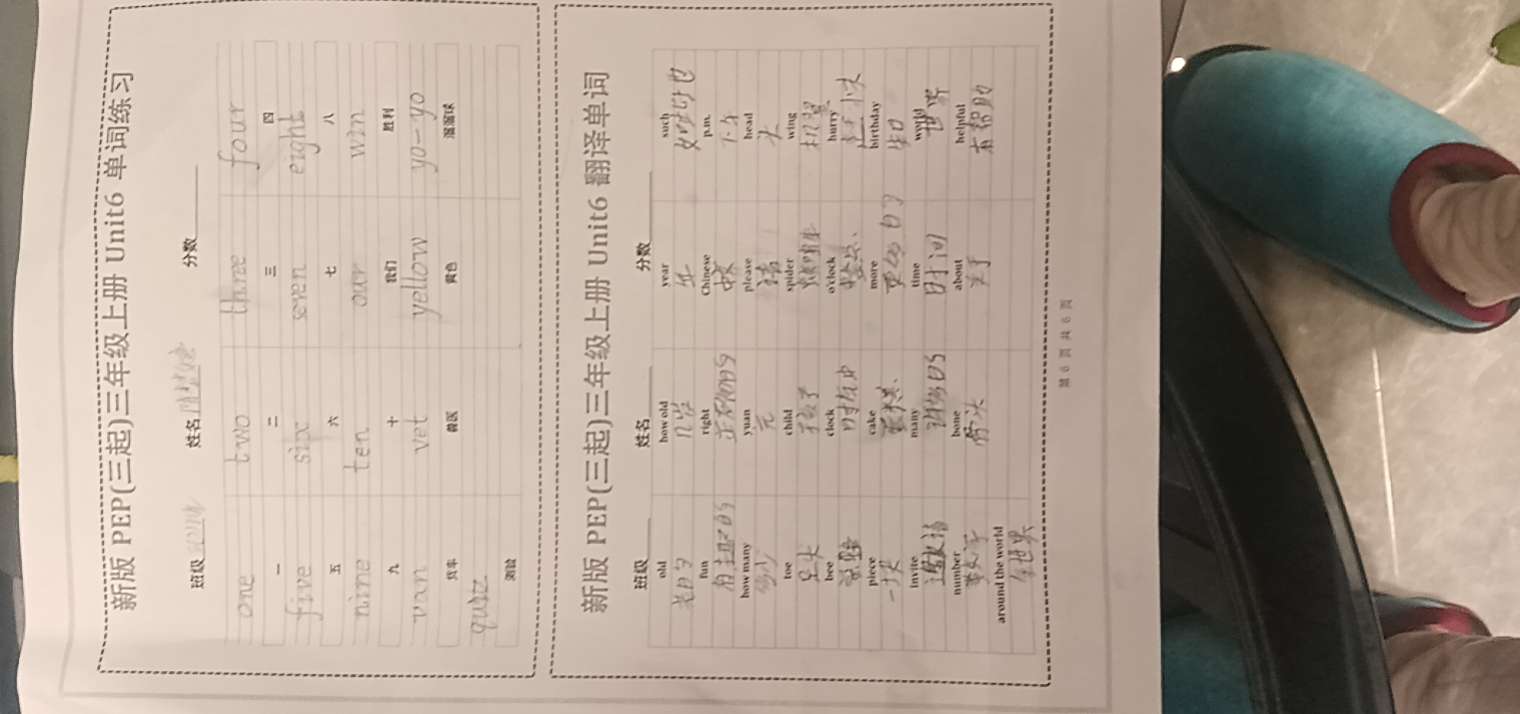 新版 PEP(三起)三年级上册 Unit6 单词练习
班级 姓名 分数
one two three four
一 二 三 四
five six seven eight
五 六 七 八
nine ten our win
九 十 我们 胜利
van vet yellow yo-yo
货车 兽医 黄色 溜溜球
quiz
测验
新版 PEP(三起)三年级上册 Unit6 翻译单词
班级 姓名 分数
old how old year such
老的 几岁 年 如此地
fun right Chinese p.m.
有趣的 正确的 中文 下午
how many yuan please head
多少 元 请 头
toe child spider wing
足尖 孩子 机翼
bee clock o'clock hurry
时钟 整点
piece cake more birthday
一块 蛋糕 更多的 生日
invite many time world
邀请 许多的 时间 世界
number bone about helpful
数字 骨头 关于 有帮助
around the world
全世界
第 6 页 共 6 页